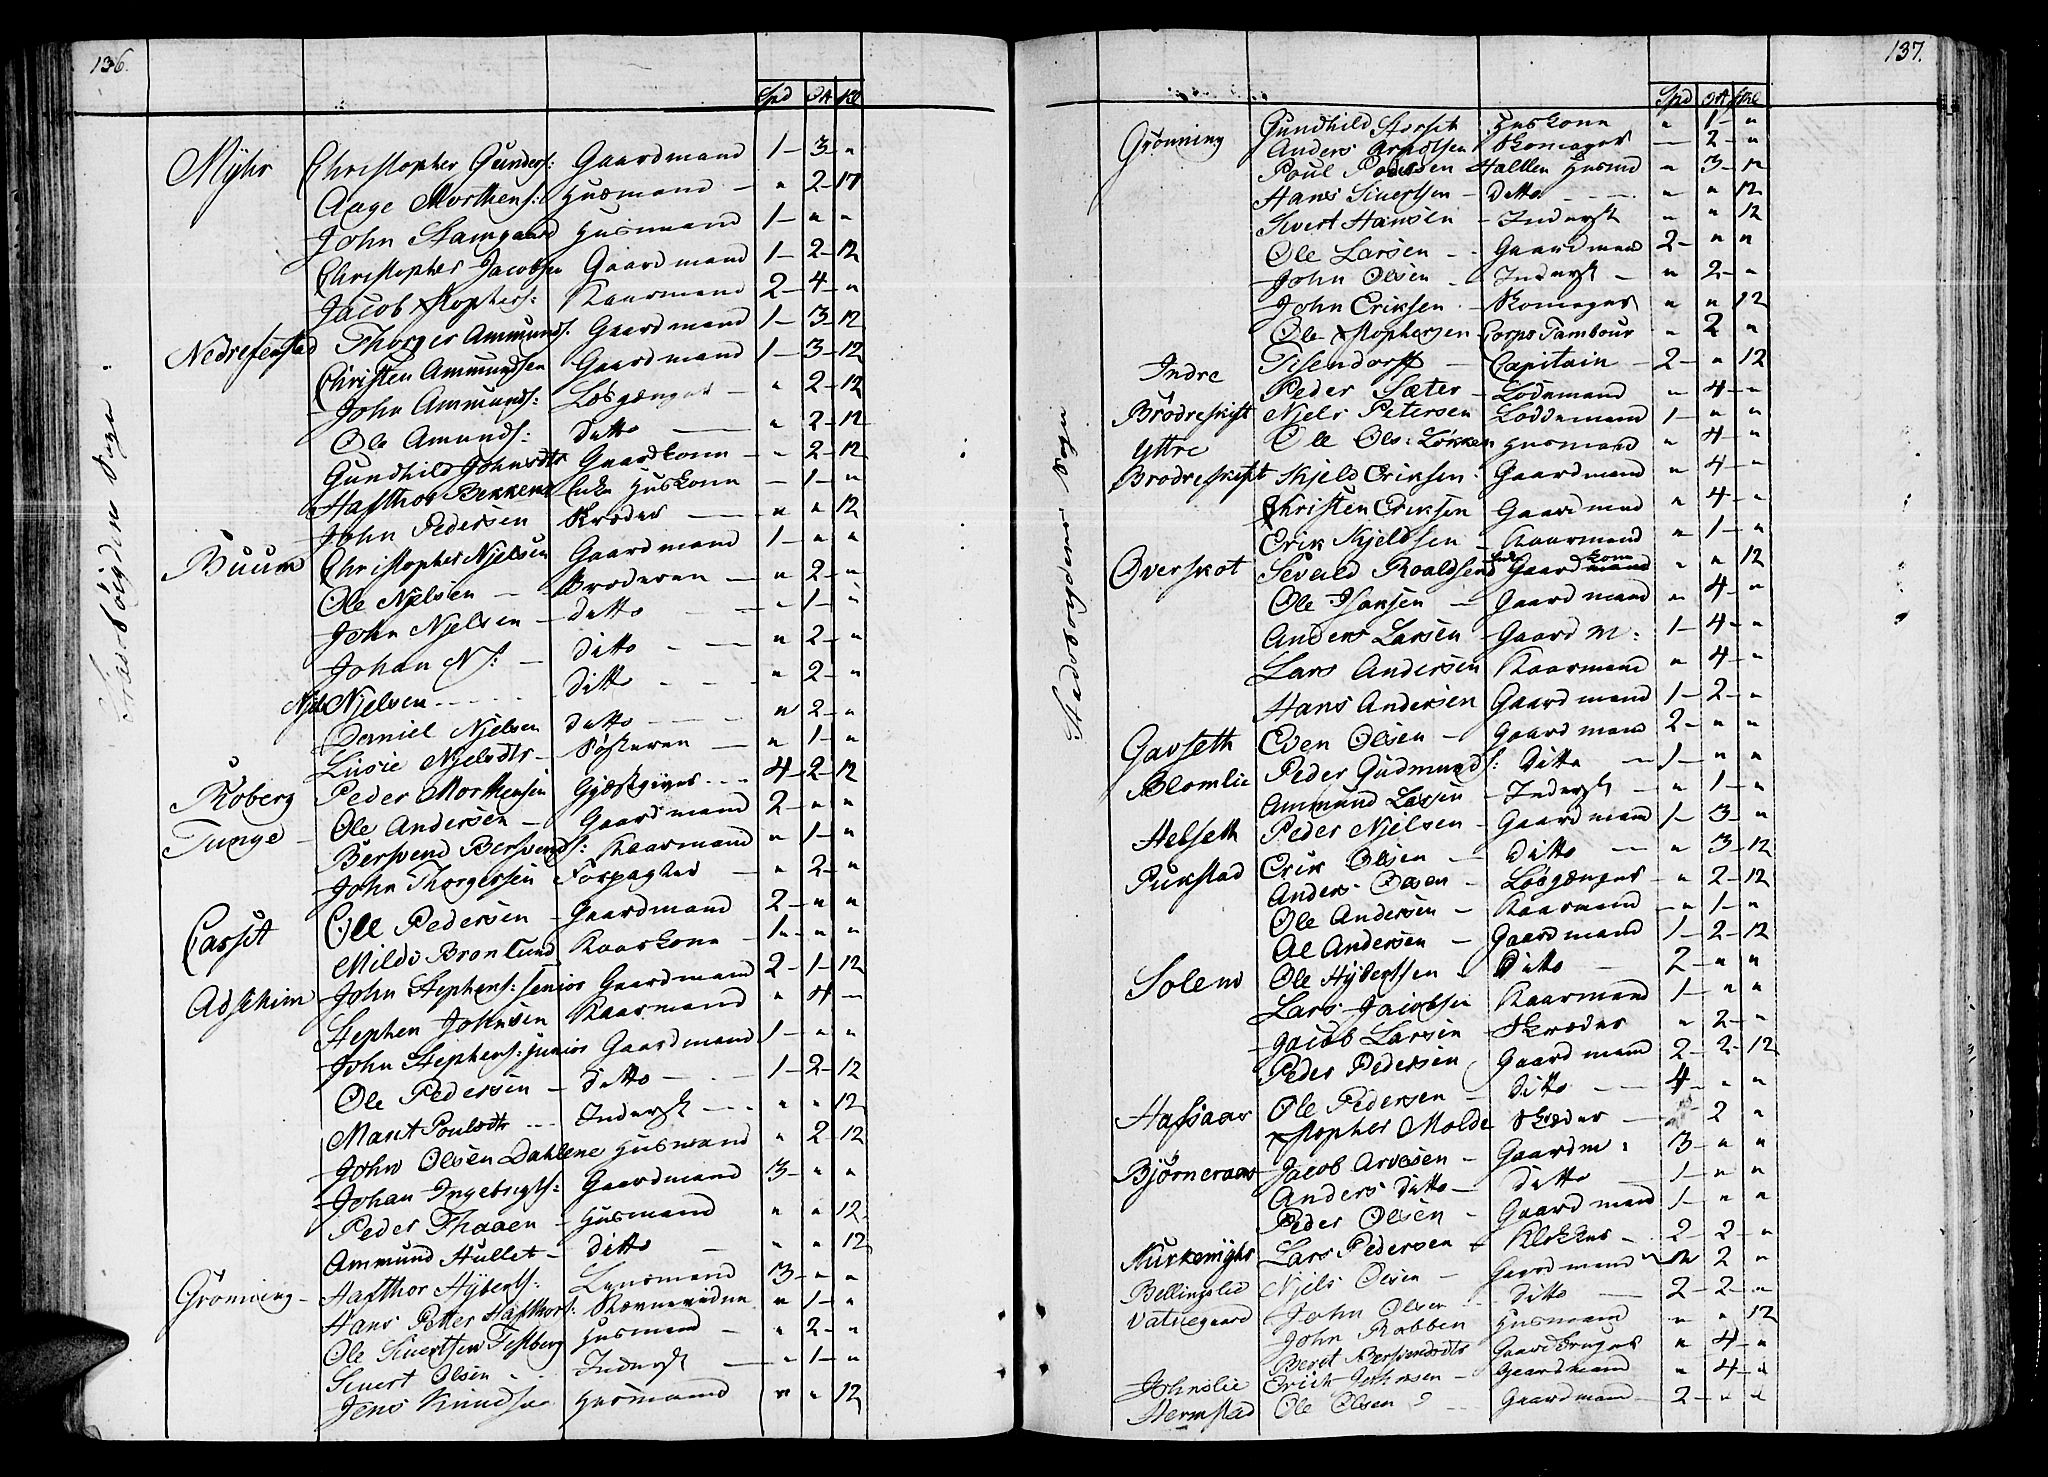 136.
Spd Ort Sk
Myhr Christopher Gunders: Gaardmand 1 - 3 - "
Aage Morthens: Husmand - " 2 - 17
John Stamgaard Husmand 1 - " "
Christopher Jacobsen Gaardmand 1 - 2 - 12
Jacob Xstophers: Kaarmand 2 - 4 - "
Nedrefenstad Thorger Ammunds: Gaardmand 1 - 3 - 12
Christen Ammundsen Gaardmand 1 - 3 - 12
John Ammunds: Løsgænger - " 2 - 12
Ole Amunds: Ditto - " 2 - 12
Gundhild Johnsdtr Gaardkone - " 2 - 12
Hafthor Bekken Enke Huskone - 1 - "
John Pedersen Skræder - " " 12
Buum Christopher Njelsen Gaardmand 1 - " "
Ole Njelsen - Broderen - " 2 - "
John Njelsen - ditto - - 1 - "
Johan N: - ditto - " 2 - "
Njels Njelsen - ditto - " 2 - "
Daniel Njelsen ditto - " 2 - "
Lusie Njelsdtr - Søsteren - " 1 - "
Roberg Peder Morthensen Gjæstgiver - 4 - 2 - 12
Tunge - Ole Andersen - Gaardmand 2 - " "
Bersvend Bersvends: Kaarmand " 1 - "
John Thorgersen Forpagter - " 2 - "
Casset Ole Pedersen - Gaardmand 2 - " "
Mildo Bronlund Kaarkone - 1 - " "
Adseheim John Stephens: senior Gaardmand 2 - 1 - 12
Stephen Johnsen Kaarmand " 4 -
John Stephens: junior Gaardmand 1 - " "
Ole Pedersen - ditto - 1 - 2 - 12
Marit Poulsdtr - Inderst - " " 12
John Olsen Dahlene Husmand " 2 - 12
Johan Ingebrigts: Gaardmand 3 - " "
Peder Thaaen - Husmand " " 12
Ammund Hullet - ditto - " " 12
Grønning - Hafthor Hyberts: Lensmand 3 - " "
Hans Petter Hafthors: " 1 - "
Ole Sivertsen Husmand - " 2 - "
Sivert Olsen Inderst - - 1 - "
Jens Knudsen Husmand " " 12
137.
Spd Ort Sk
Strindebogdens Sogn
Grønning Gundhild Huskone " 1 - "
Anders Arnolsen Skomager - 2 - "
Poul Poulsen Hallten Husmd " 3 - 12
Hans Siversen - Ditto - " " 12
Sivert Hansen - Inderst " " 12
Ole Larsen - Gaardmand 2 - " "
John Olsen - Inderst - " 2 - "
John Eriksen - Skomager " " 12
Ole Xstophersen Corps Tambour " 2 "
Indre Tisendorff - Capitain - 2 - " 12
Peder Sæter - Lodsmand " 4 - "
Brødreskift Njels Petersen Loddemand 1 - " "
Yttre Ole Ols: Løkken Husmand " 4 - "
Brodreskift Skjeld Eriksen: Gaardmand " 4 - "
Christen Eriksen Gaardmand " 4 - "
Erik Skjeldsen - Kaarmand " 1 - "
Overskot Sevald Roaldsens Enke Gaardkone " " 12
Ole Hansen - Gaardmand " 4 - "
Anders Larsen - Gaardm: 1 - 4 - "
Lars Andersen Kaarmand " 4 - "
Hans Andersen Gaardmand 1 - 2 - "
Gavseth Even Olsen - Gaardmand 2 - " "
Blomlie Peder Gudmunds: Ditto - 1 - " "
Ammund Larsen - Inderst - " 1 - "
Helseth Peder Njelsen - Gaardmand 1 - 3 - "
Pukstad Erik Olsen - Ditto - " 3 - 12
Anders Olsen - Løsgænger - " 2 - 12
Ole Andersen - Kaarmand - " 1 - "
Al Andersen - Gaardmand 1 - 2 - 12
Solem Ole Hybertsen - Ditto - 2 - " "
Lars Jacobsen Kaarmand 1 - " "
Jacob Larsen - Skræder " 2 - "
Peder Pedersen Gaardmand 2 - 2 - 12
Hafsaas Ole Pedersen - Ditto - 4 - " "
Xstopher Molde Skræder - 2 "
Bjørneraas Jacob Arvesen - Gaardm: 3 - " "
Anders Ditto - Ditto - 1 - " "
Peder Olsen - Gaardmand 1 - " "
Kirkemyhr Lars Pedersen - Klokker - 2 - 2 - "
Bellingslid Njels Olsen - Gaardmand " 2 "
Vatnegaard John Olsen - Ditto - 2 - 2 - "
John Robben Husmand " " 12
Beret Bersvendsdtr Gaardbruger " 4 - "
Johnslie Erich Johnsen - Gaardmand " 4 - "
Hermstad Ole Olsen Gaardmand - 2 - " "